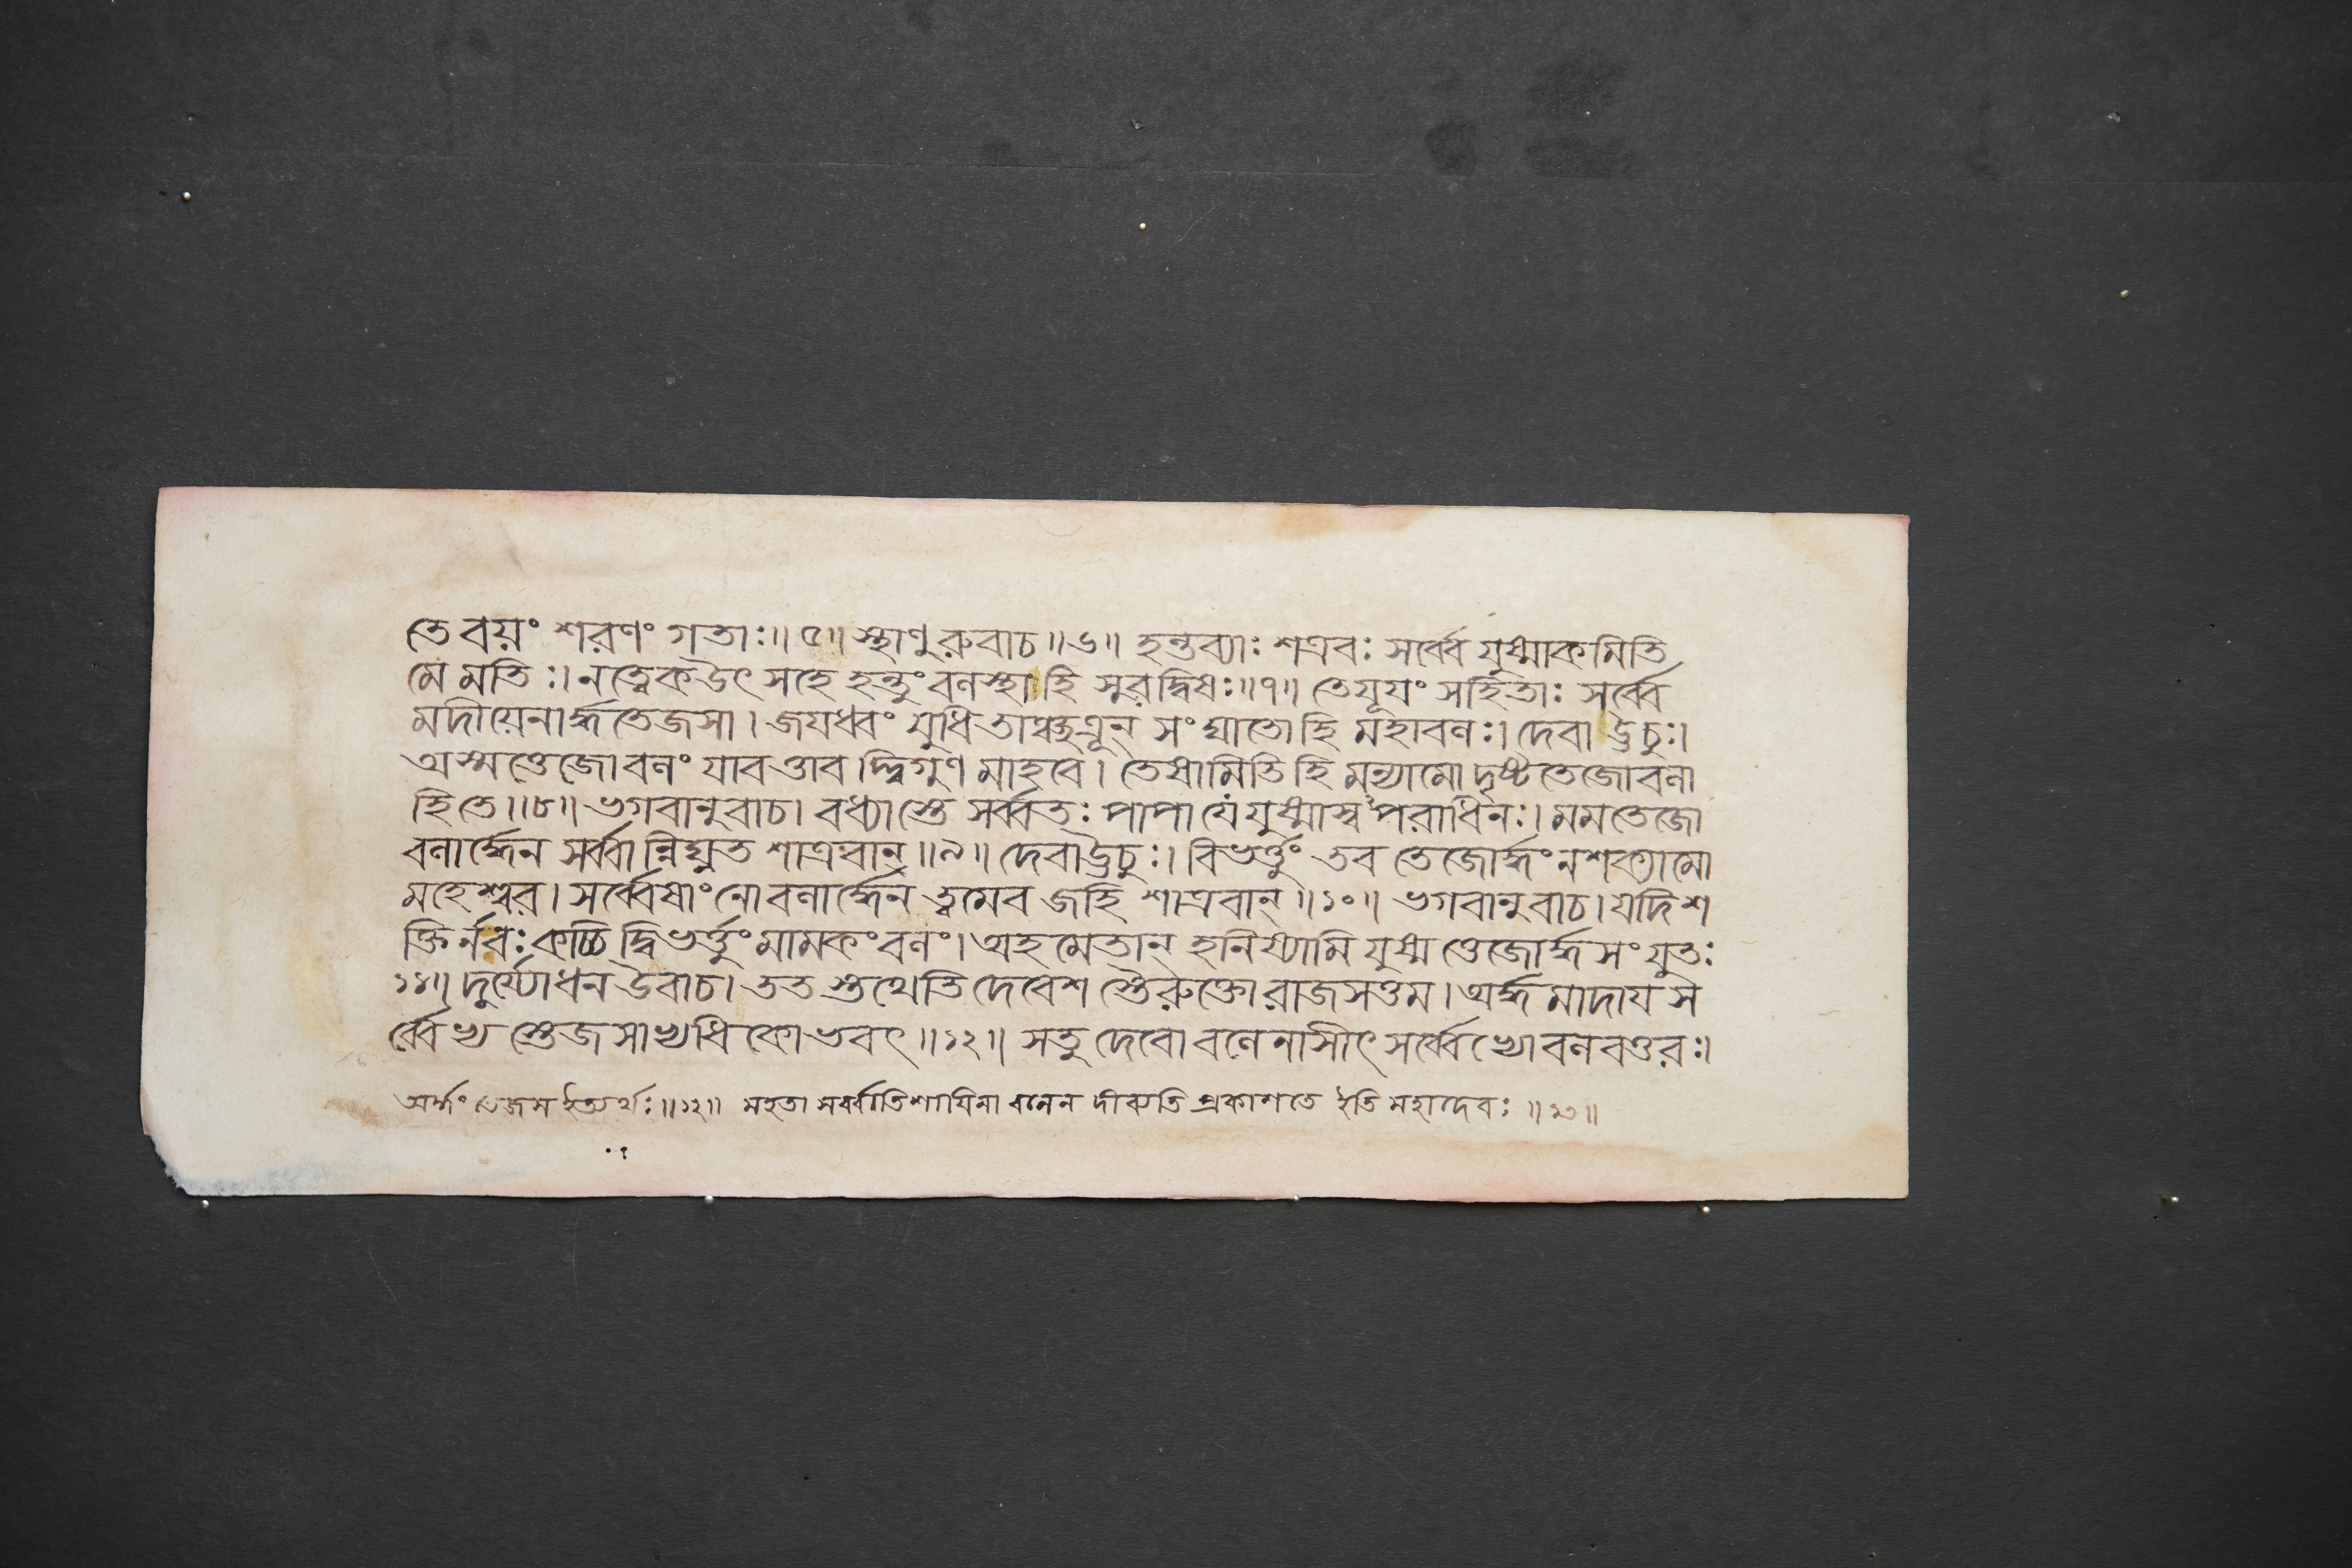 তে বয়ং শরণং গতাঃ॥ ৫॥ স্থাণু রুবাচ॥ ৬॥ হন্তব্যাঃ শত্রবঃ সর্ব্বে যুষ্মাকমিতি
মে মতিঃ। নত্বেক উৎ সহে হন্তুং বলস্থা হি সুরদ্বিষঃ॥ ৭॥ তে যূয়ং সহিতাঃ সর্ব্বে
মদীয়েনার্দ্ধতেজসা। জয়ধ্বং যুধি তাঞ্চত্রূন্ সংঘাতো হি মহাবলঃ। দেবা ঊচুঃ।
অস্মত্তেজোবলং যাবত্তাবদ্দ্বিগুণ মাহবে। তেষামিতি হি মন্যামো দৃষ্টতেজোবলা
হি তে॥ ৮॥ ভগবানুবাচ। বধ্যাস্তে সর্ব্বতঃ পাপা যে যুষ্মাস্বপরাধিনঃ। মম তেজো
বলার্দ্ধেন সর্ব্বান্নিঘ্নত শাত্রবান্॥ ৯॥ দেবা ঊচুঃ। বিভর্ত্তুং তব তেজোর্দ্ধং ন শক্যামো
মহেশ্বর। সর্ব্বেষাং নো বলার্দ্ধেন ত্বমেব জহি শাত্রবান্॥ ১০॥ ভগবানুবাচ। যদি শ
ক্তির্নবঃ কাচিদ্বিভর্ত্তুং মামকং বলং। অহমেতান্ হনিষ্যামি যুষ্মত্তেজোর্দ্ধ সংযুতঃ
১১॥ দুর্য্যোধন উবাচ। তত স্তথেতি দেবেশ স্তৈরুক্তো রাজসত্তম। অর্দ্ধমাদায় স
র্ব্বেভ্য স্তেজসাভ্যধিকোভবৎ॥ ১২॥ সতু দেবো বলেনাসীৎ সর্ব্বেভ্যো বলবত্তরঃ।
অর্দ্ধং তেজস ইত্যর্থঃ॥ ১২॥ মহতা সর্ব্বাতিশায়িনা বলেন দীব্যতি প্রকাশতে ইতি মহাদেবঃ॥ ১৩॥